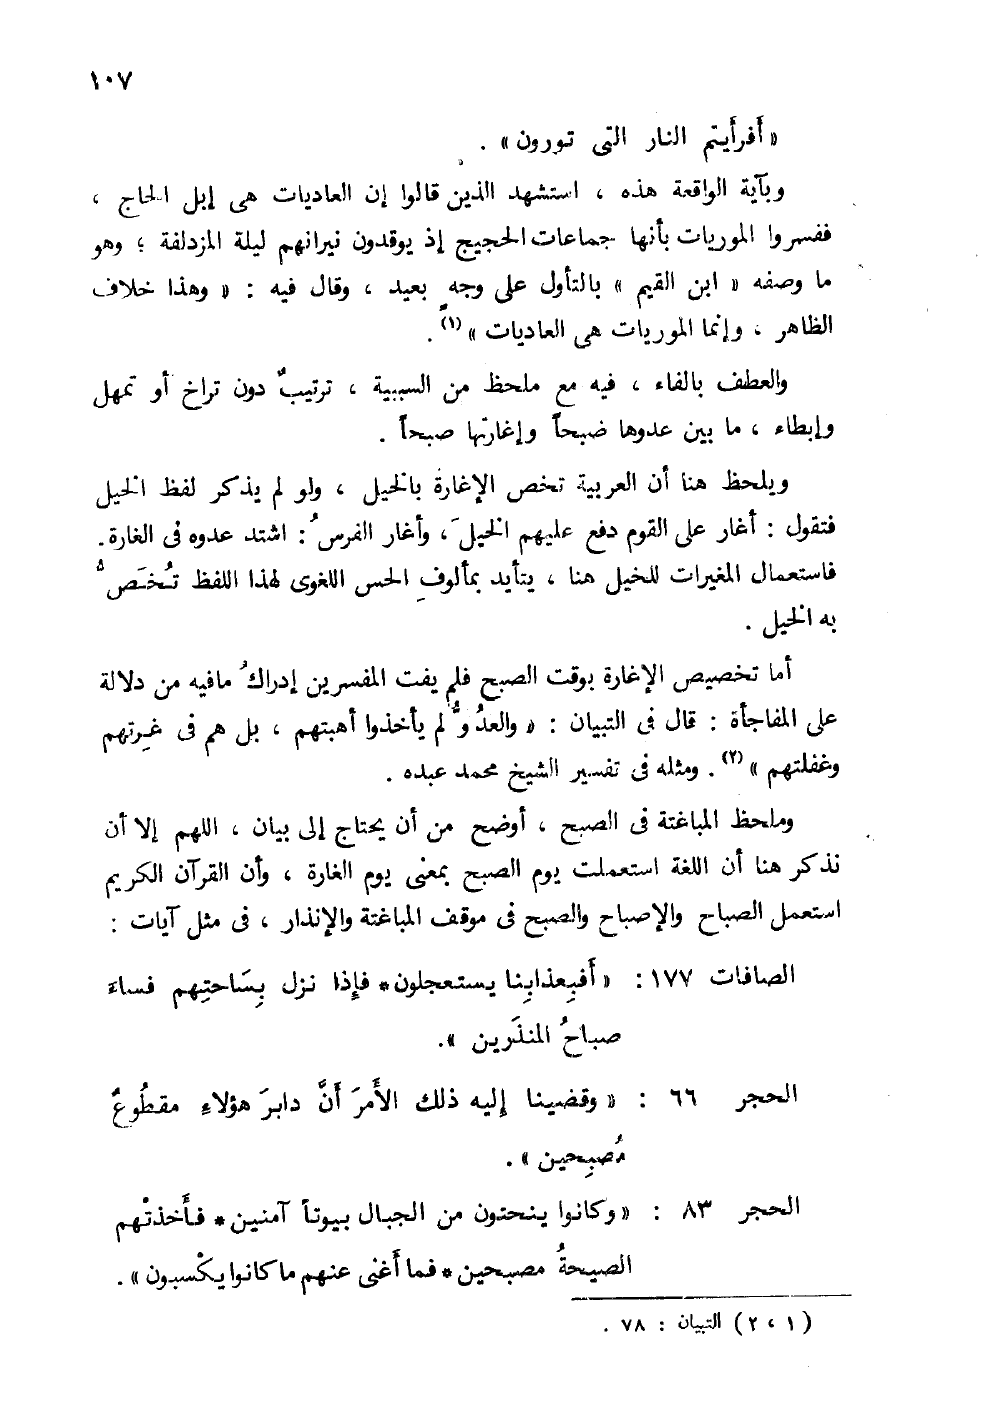 ١٠٧
« أفرأيتم النار التى تورون » .
وبآية الواقعة هذه ، استشهد الذين قالوا إن العاديات هى إبل الحاج ،
ففسروا الموريات بأنها جماعات الحجيج إذ يوقدون نيرانهم ليلة المزدلفة ؛ وهو
ما وصفه « ابن القيم » بالتأول على وجه بعيد ، وقال فيه : « وهذا خلاف
الظاهر ، وإنما الموريات هى العاديات » (١) .
والعطف بالفاء ، فيه مع ملحظ من السببية ، ترتيبٌ دون تراخ أو تمهل
وإبطاء ، ما بين عدوها ضبحاً وإغارتها صبحاً .
ويلحظ هنا أن العربية تخص الإغارة بالخيل ، ولو لم يذكر لفظ الخيل
فتقول : أغار على القوم دفع عليهم الخيلَ ، وأغار الفرسُ : اشتد عدوه فى الغارة .
فاستعمال المغيرات للخيل هنا ، يتأيد بمألوفِ الحس اللغوى لهذا اللفظ تُخَصُّ
به الخيل .
أما تخصيص الإغارة بوقت الصبح فلم يفت المفسرين إدراكُ مافيه من دلالة
على المفاجأة : قال فى التبيان : « والعدُوُّ لم يأخذوا أهبتهم ، بل هم فى غِرتهم
وغفلتهم » (٢) . ومثله فى تفسير الشيخ محمد عبده .
وملحظ المباغتة فى الصبح ، أوضح من أن يحتاج إلى بيان ، اللهم إلا أن
نذكر هنا أن اللغة استعملت يوم الصبح بمعنى يوم الغارة ، وأن القرآن الكريم
استعمل الصباح والإصباح والصبح فى موقف المباغتة والإنذار ، فى مثل آيات :
الصافات ١٧٧ : « أفبِعذابِنا يستعجلون * فإِذا نزل بِسَاحتِهم فساءَ
صباحُ المنذَرين » .
الحجر ٦٦ : « وقضينا إليه ذلك الأَمرَ أَنَّ دابرَ هؤلاءِ مقطُوعٌ
مُصبِحين » .
الحجر ٨٣ : « وكانوا ينحتون من الجبال بيوتاً آمنين * فأَخذتْهم
الصيحةُ مصبحين * فما أَغنى عنهم ما كانوا يكْسبون » .
(١ ، ٢) التبيان : ٧٨ .